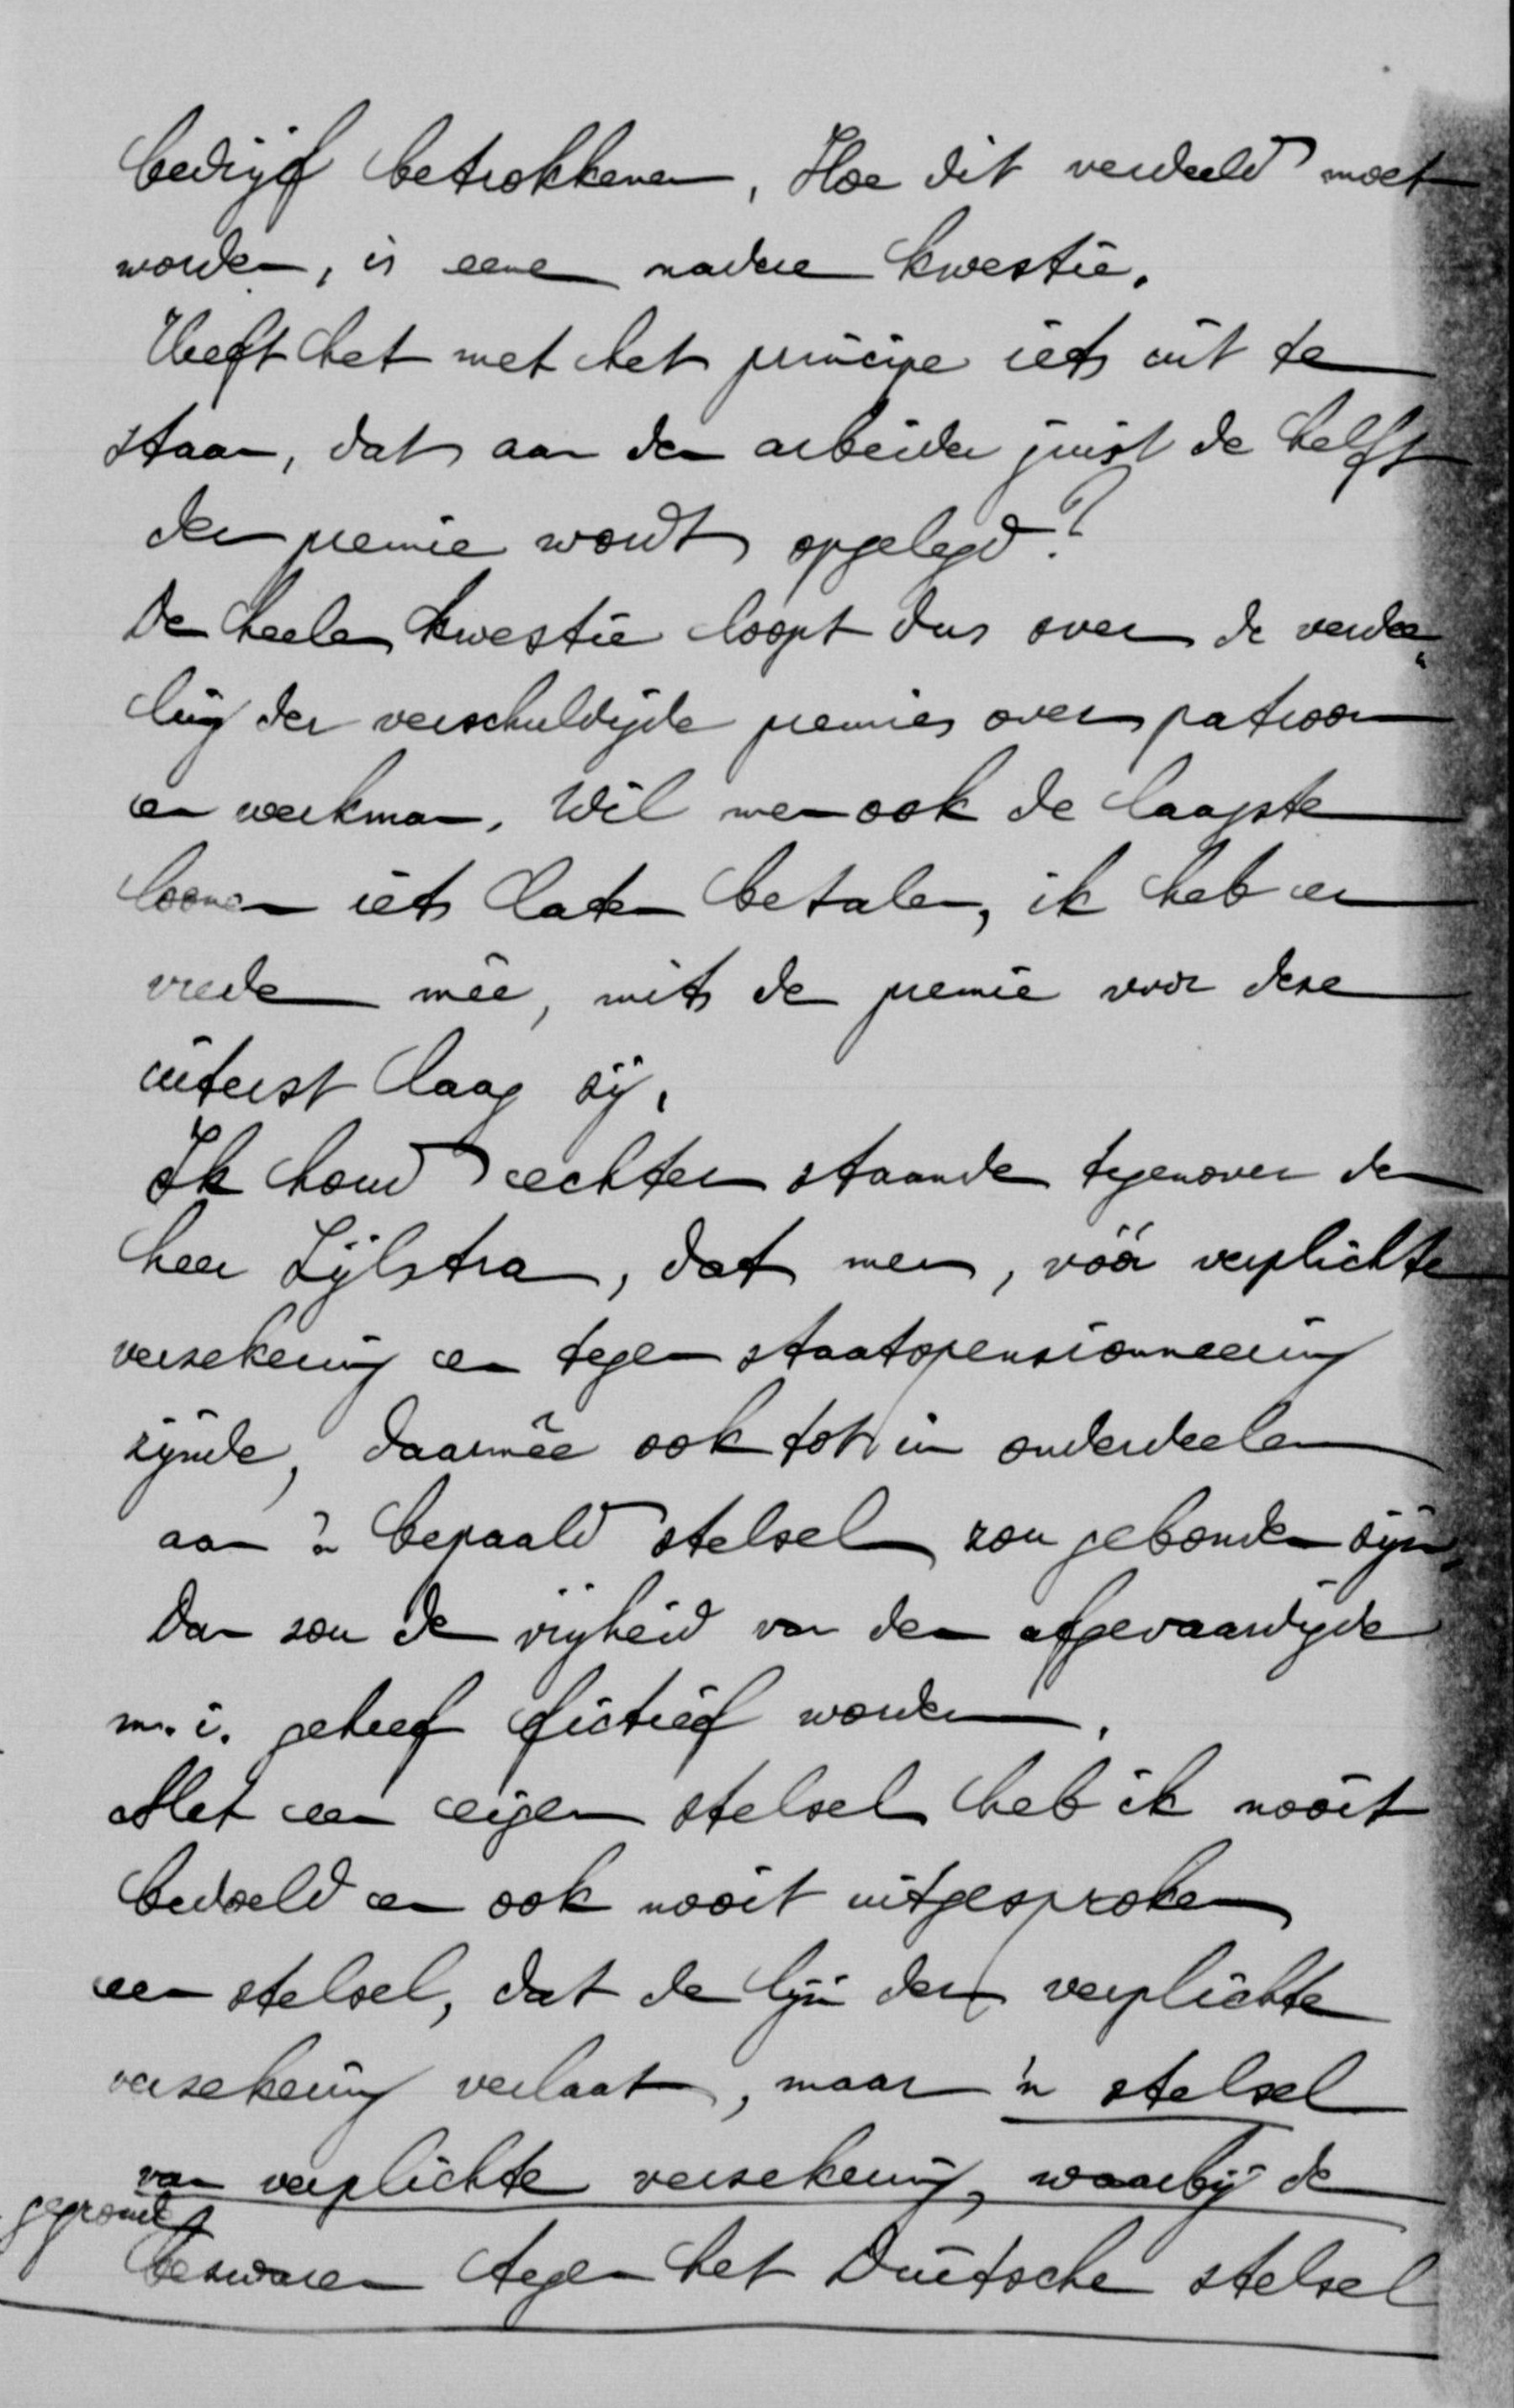 bedrijf betrokkenen. Hoe dit verdeeld moet
worden, is eene nadere kwestie.
Heeft het met het principe iets uit te
staan, dat aan den arbeider juist de helft
der premie wordt opgelegd?
De heele kwestie loopt dus over de verdee„
ling der verschuldigde premies over patroon
en werkman. Wil men ook de laagste
loonen iets laten betalen, ik heb er
vrede mêe, mits de premie voor deze
uiterst laag zij.
Ik houd echter staande tegenover den
heer Zijlstra, dat men, vóór verplichte
verzekering en tegen staatspensionneering
zijnde, daarmêe ook tot in onderdeelen
aan 'n bepaald stelsel zou gebonden zijn.
Dan zou de vrijheid van den afgevaardigde
m. i. geheel fictief worden.
Met een eigen stelsel heb ik nooit
bedoeld en ook nooit uitgesproken
een stelsel, dat de lijn der verplichte
verzekering verlaat, maar 'n stelsel
van verplichte verzekering, waarbij de
gegronde
bezwaren tegen het Duitsche stelsel